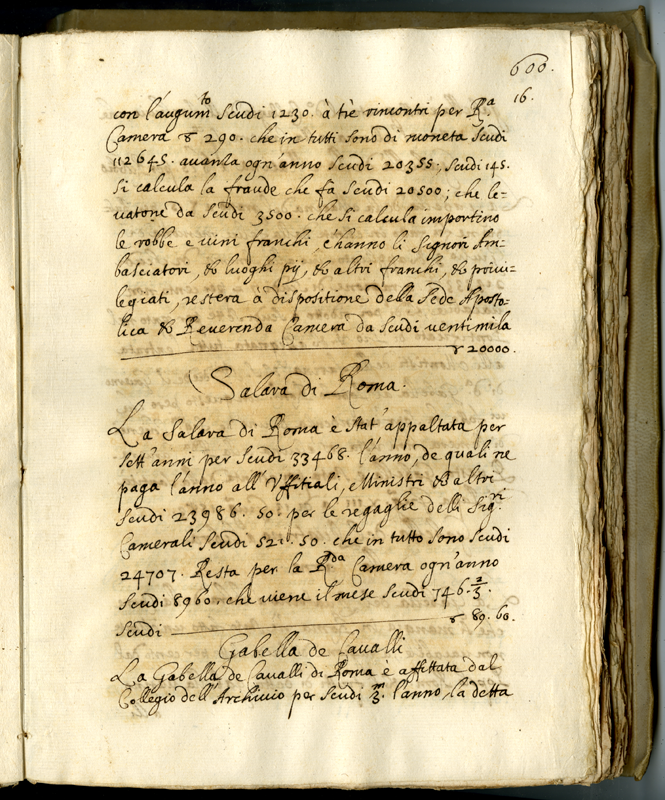 600.
16.
con l'augum.to Scudi 1230. à trè rincontri per R.a
Camera ∇ 290. che in tutti sono di moneta scudi
112645. auanza ogn'anno scudi 20355. scudi 145.
si calcula la fraude che fà scudi 20500; che le=
uatone da scudi 3500. che si calcula importino
le robbe e uini franchi, c'hanno li Signori Am=
basciatori, & luoghi pij, & altri franchi, & priui=
legiati, resterà à dispositione della Sede Aposto=
lica & Reverenda Camera da scudi uentimila
∇ 20000.
Salara di Roma.
La Salara di Roma è stat'appaltata per
sett'anni per scudi 33468. l'anno, de quali ne
paga l'anno all'Uffitiali, e Ministri & altri
scudi 23986. 50. per le regaglie delli Sig.ri
Camerali scudi 521. 50. che in tutto sono scudi
24707. Resta per la R.da Camera ogn'anno
scudi 8960. che uiene il mese scudi 746. 2/3.
Scudi ∇ 89. 60.
Gabella de Caualli
La Gabella de Caualli di Roma è affittata dal
Collegio dell'Archiuio per scudi m/3. l'anno, la detta